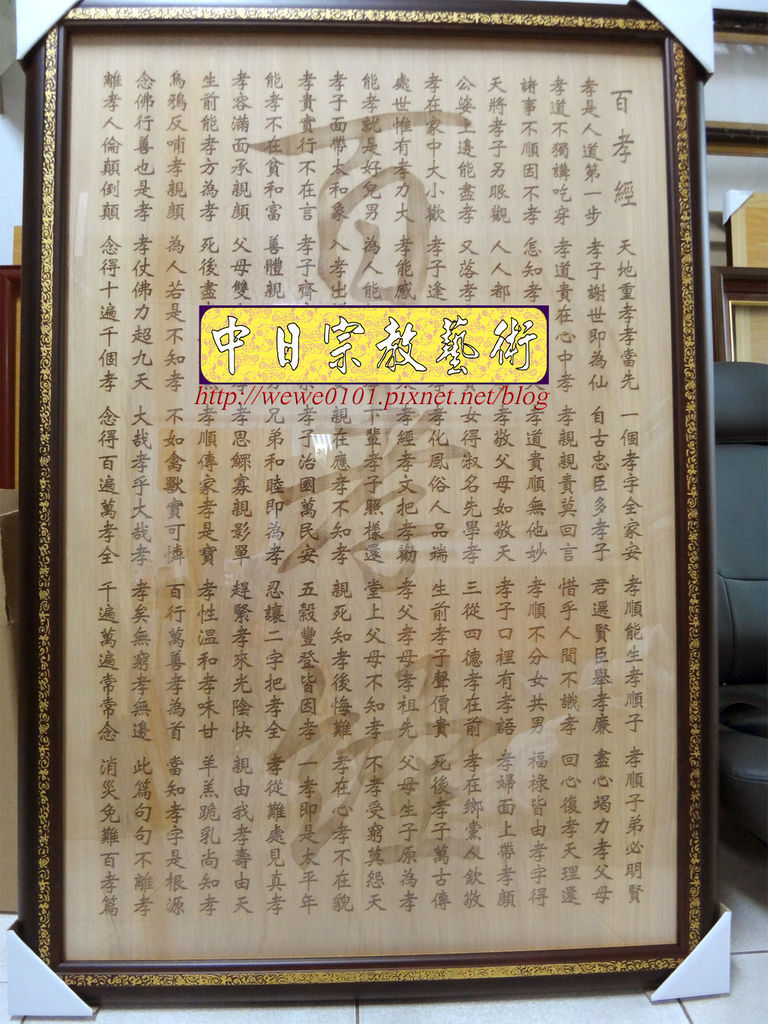 百孝經 天地重孝孝當先 一個孝字全家安 孝順能生孝順子 孝順子弟必明賢
孝是人道第一步 孝子謝世即為仙 自古忠臣多孝子 君選賢臣舉孝廉 盡心竭力孝父母
孝道不獨講吃穿 孝道貴在心中孝 孝親親責莫回言 惜乎人間不識孝 回心復孝天理還
諸事不順因不孝 怎知孝 孝道貴順無他妙 孝順不分女共男 福祿皆由孝字得
天將孝子另眼觀 人人都 孝敬父母如敬天 孝子口裡有孝語 孝婦面上帶孝顏
公婆上邊能盡孝 又落孝 女得淑名先學孝 三從四德孝在前 孝在鄉黨人欽敬
孝在家中大小歡 孝子逢 孝化風俗人品端 生前孝子聲價貴 死後孝子萬古傳
處世惟有孝力大 孝能感 孝經孝文把孝勸 孝父孝母孝祖先 父母生子原為孝
能孝就是好兒男 為人能 下輩孝子照樣還 堂上父母不知孝 不孝受窮莫怨天
孝子面帶太和象 入孝出 親在應孝不知孝 親死知孝後悔難 孝在心孝不在貌
孝貴實行不在言 孝子齊 孝子治國萬民安 五穀豐登皆因孝 一孝即是太平年
能孝不在貧和富 善體親 兄弟和睦即為孝 忍讓二字把孝全 孝從難處見真孝
孝容滿面承親顏 父母雙 孝思鰥寡親影單 趕緊孝來光陰快 親由我孝壽由天
生前能孝方為孝 死後盡 孝順傳家孝是寶 孝性溫和孝味甘 羊羔跪乳尚知孝
烏鴉反哺孝親顏 為人若是不知孝 不如禽獸實可憐 百行萬善孝為首 當知孝字是根源
念佛行善也是孝 孝仗佛力超九天 大哉孝乎大哉孝 孝矣無窮孝無邊 此篇句句不離孝
離孝人倫顛倒顛 念得十遍千個孝 念得百遍萬孝全 千遍萬遍常常念 消災免難百孝篇
中日宗教藝術
http://wewe0101.pixnet.net/blog